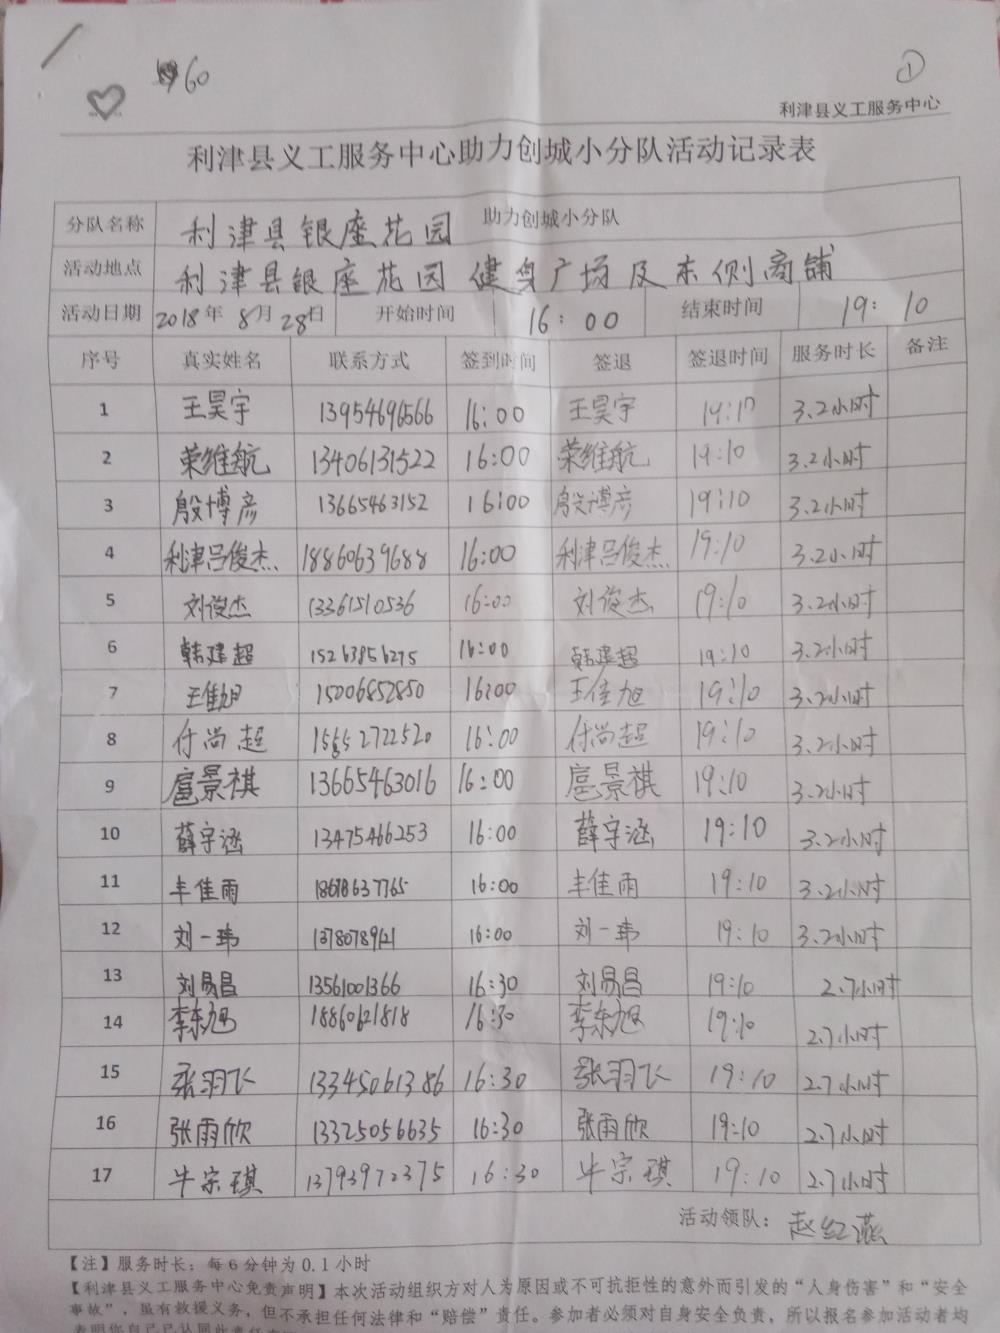 60
①
利津县义工服务中心
利津县义工服务中心助力创城小分队活动记录表
分队名称 利津县银座花园 助力创城小分队
活动地点 利津县银座花园 健身广场及东侧商铺
活动日期 2018年8月28日 开始时间 16:00 结束时间 19:10
序号 真实姓名 联系方式 签到时间 签退 签退时间 服务时长 备注
1 王昊宇 13954696566 16:00 王昊宇 19:10 3.2小时
2 荣维航 13406131522 16:00 荣维航 19:10 3.2小时
3 殷博彦 13665463152 16:00 殷博彦 19:10 3.2小时
4 利津吕俊杰 18860639688 16:00 利津吕俊杰 19:10 3.2小时
5 刘俊杰 13361510536 16:00 刘俊杰 19:10 3.2小时
6 韩建超 15263856275 16:00 韩建超 19:10 3.2小时
7 王佳旭 15206852850 16:00 王佳旭 19:10 3.2小时
8 付尚超 15652722520 16:00 付尚超 19:10 3.2小时
9 扈景祺 13665463016 16:00 扈景祺 19:10 3.2小时
10 薛宇涵 13475466253 16:00 薛宇涵 19:10 3.2小时
11 丰佳雨 18678637765 16:00 丰佳雨 19:10 3.2小时
12 刘一玮 16:00 刘一玮 19:10 3.2小时
13 刘易昌 13561001366 16:30 刘易昌 19:10 2.7小时
14 李东旭 18860621818 16:30 李东旭 19:10 2.7小时
15 张羽飞 13345061386 16:30 张羽飞 19:10 2.7小时
16 张雨欣 13325056635 16:30 张雨欣 19:10 2.7小时
17 牛宗琪 13793972375 16:30 牛宗琪 19:10 2.7小时
活动领队：赵红燕
【注】服务时长：每6分钟为0.1小时
【利津县义工服务中心免责声明】本次活动组织方对人为原因或不可抗拒性的意外而引发的“人身伤害”和“安全
事故”，虽有救援义务，但不承担任何法律和“赔偿”责任。参加者必须对自身安全负责，所以报名参加活动者均